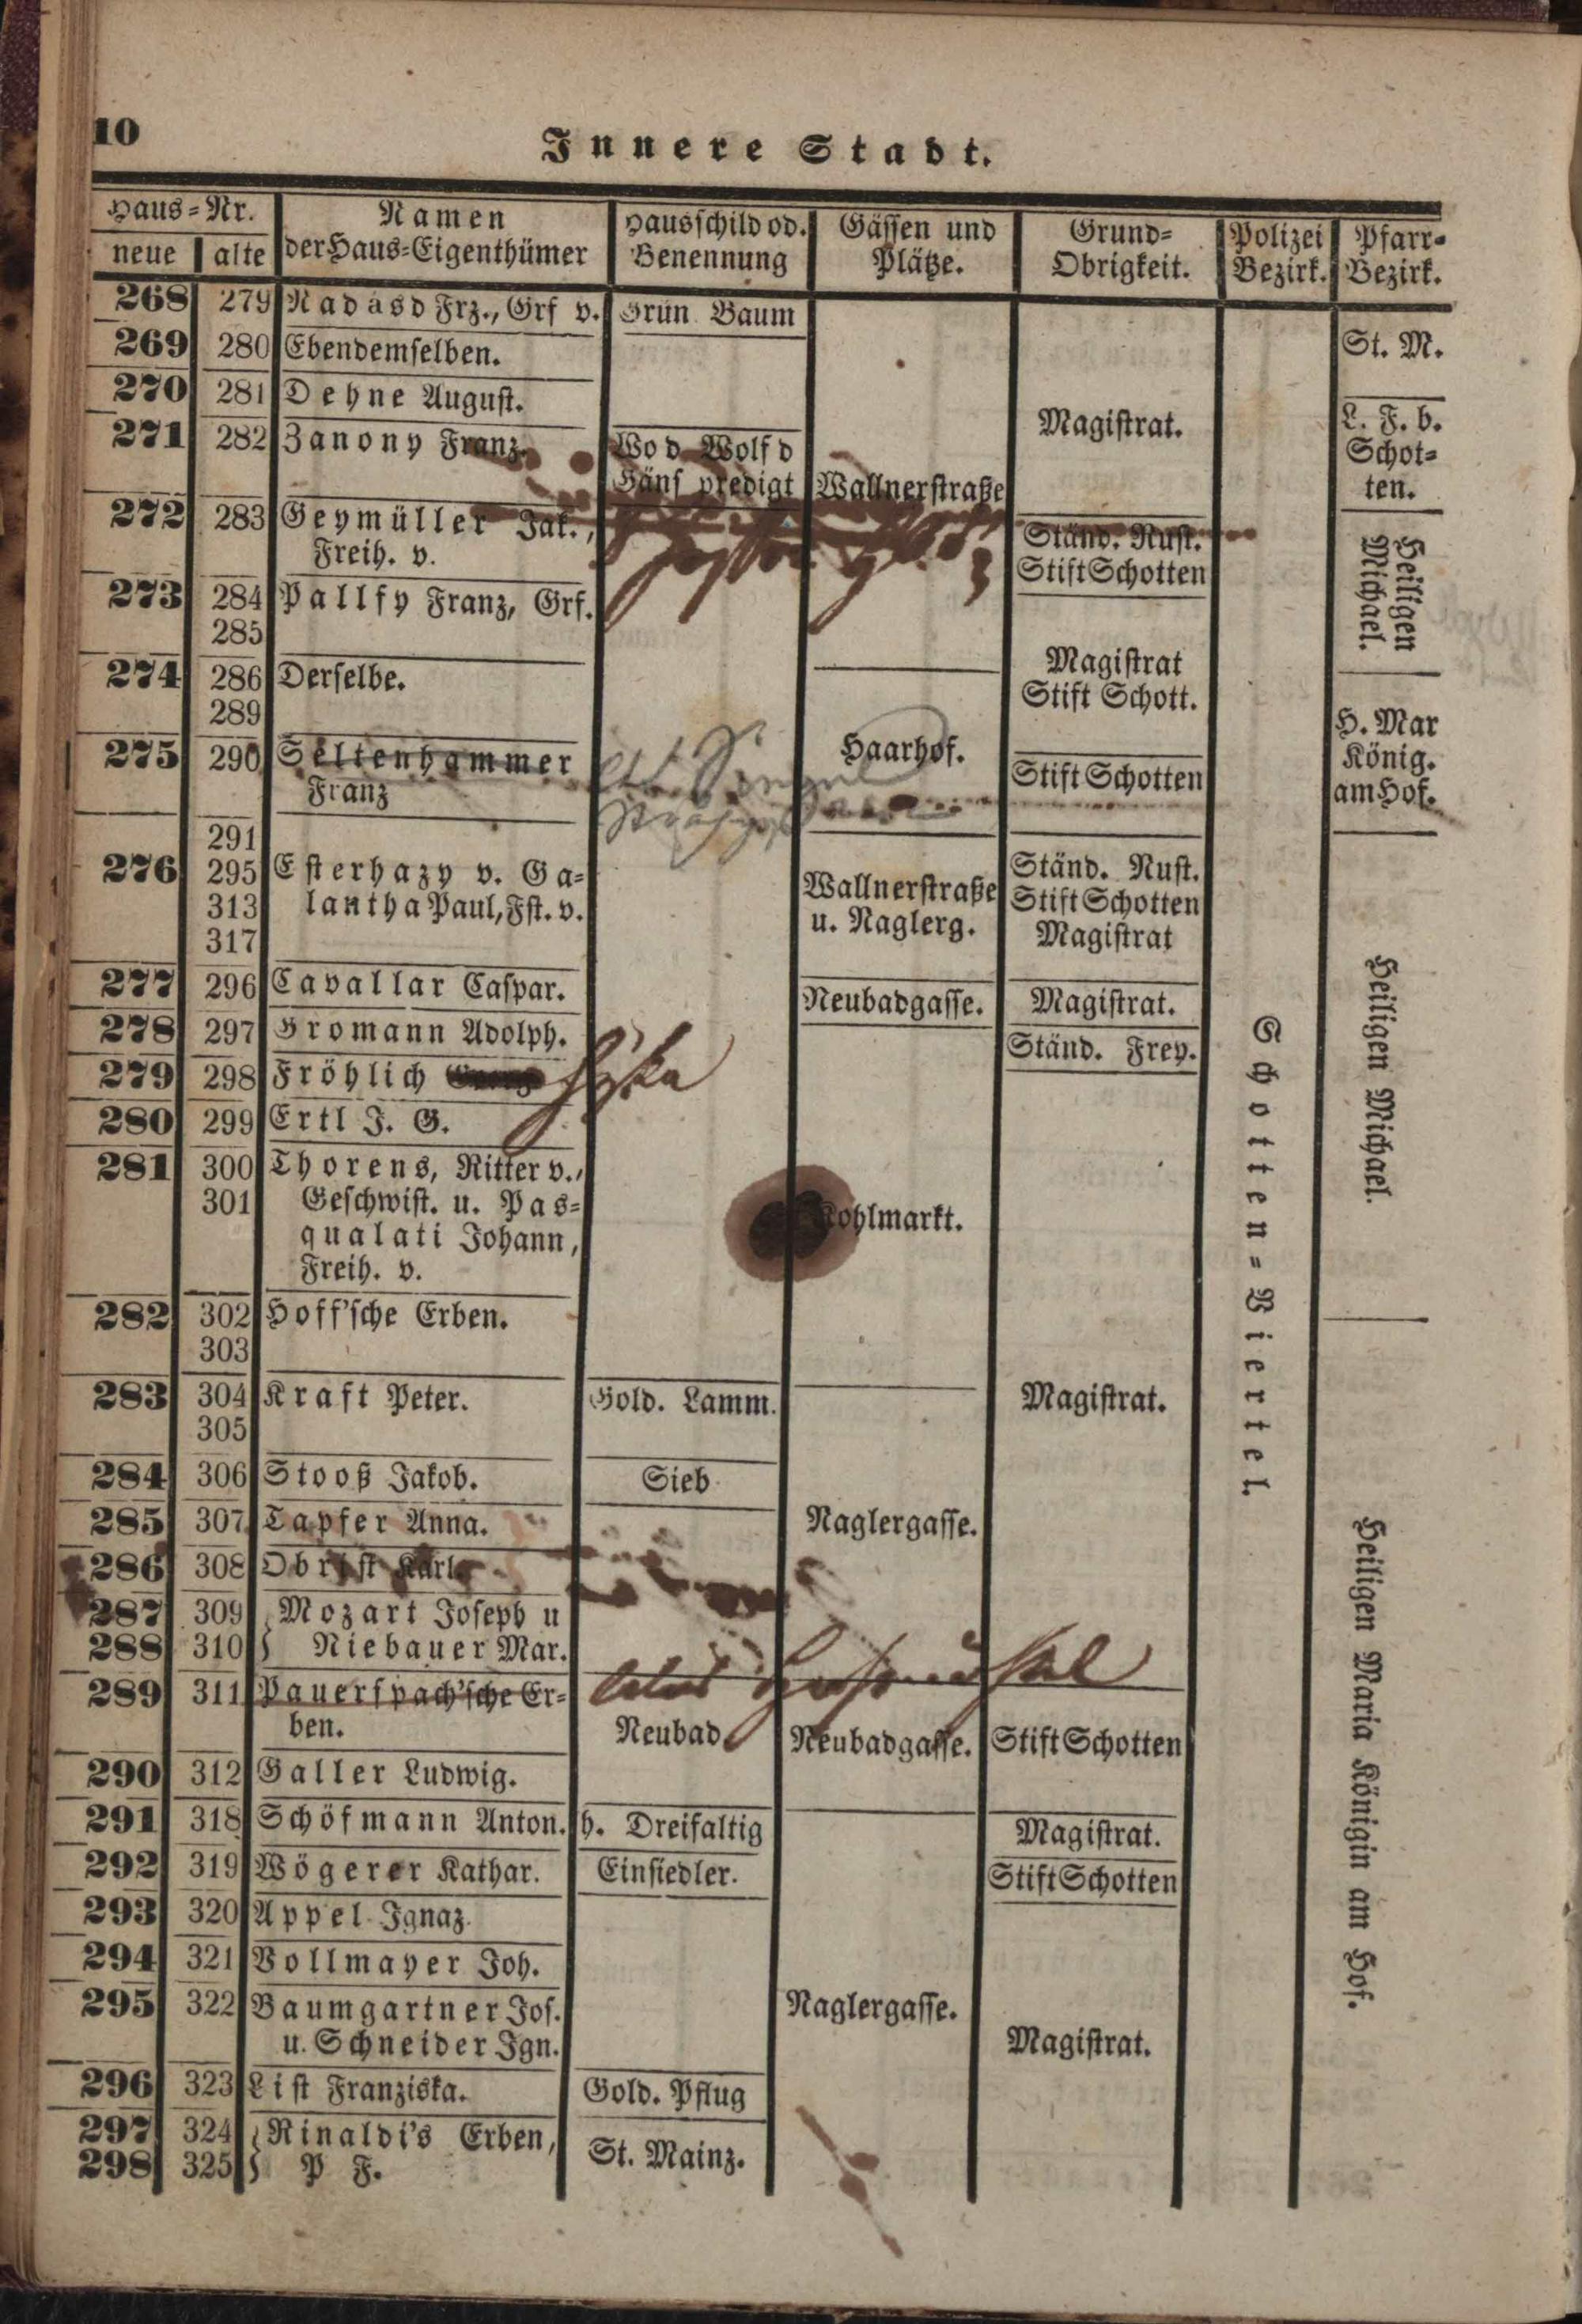 10
Innere Stadt.
Haus-Nr. Namen Hausschild od. Gässen und Grund- Polizei Pfarr-
neue alte der Haus-Eigenthümer Benennung Plätze. Obrigkeit. Bezirk. Bezirk.
268 279 Nadásd Frz., Grf v. Grün Baum
269 280 Ebendemselben. St. M.
270 281 Dehne August.
Magistrat. L. F. b.
271 282 Zanony Franz. Wo d Wolf d Schot-
Gäns predigt Wallnerstraße ten.
272 283 Geymüller Jak., Ständ. Rust.
Freih. v. Stift Schotten
Heiligen
Michael.
273 284 Pallfy Franz, Grf.
285
Magistrat
274 286 Derselbe. Stift Schott.
289 H. Mar
275 290 Seltenhammer Haarhof. Stift Schotten König.
Franz am Hof.
291
276 295 Esterhazy v. Ga- Wallnerstraße Ständ. Rust.
313 lantha Paul, Fst. v. u. Naglerg. Stift Schotten
317 Magistrat
277 296 Cavallar Caspar. Neubadgasse. Magistrat.
278 297 Gromann Adolph. Ständ. Frey.
279 298 Fröhlich
280 299 Ertl J. G.
281 300 Thorens, Ritter v.,
301 Geschwist. u. Pas- Kohlmarkt.
qualati Johann,
Freih. v.
Heiligen Michael.
Schotten-Viertel.
282 302 Hoff'sche Erben.
303
283 304 Kraft Peter. Gold. Lamm. Magistrat.
305
284 306 Stooß Jakob. Sieb
285 307 Tapfer Anna. Naglergasse.
286 308 Obrist Karl.
287 309 Mozart Joseph u
288 310 Niebauer Mar.
289 311 Pauerspach'sche Er-
ben. Neubad Neubadgasse. Stift Schotten
290 312 Galler Ludwig.
291 318 Schöfmann Anton. h. Dreifaltig Magistrat.
292 319 Wögerer Kathar. Einsiedler. Stift Schotten
Heiligen Maria Königin am Hof.
293 320 Appel Ignaz.
294 321 Vollmayer Joh.
295 322 Baumgartner Jos. Naglergasse.
u. Schneider Ign. Magistrat.
296 323 List Franziska. Gold. Pflug
297 324 Rinaldi's Erben, St. Mainz.
298 325 P F.